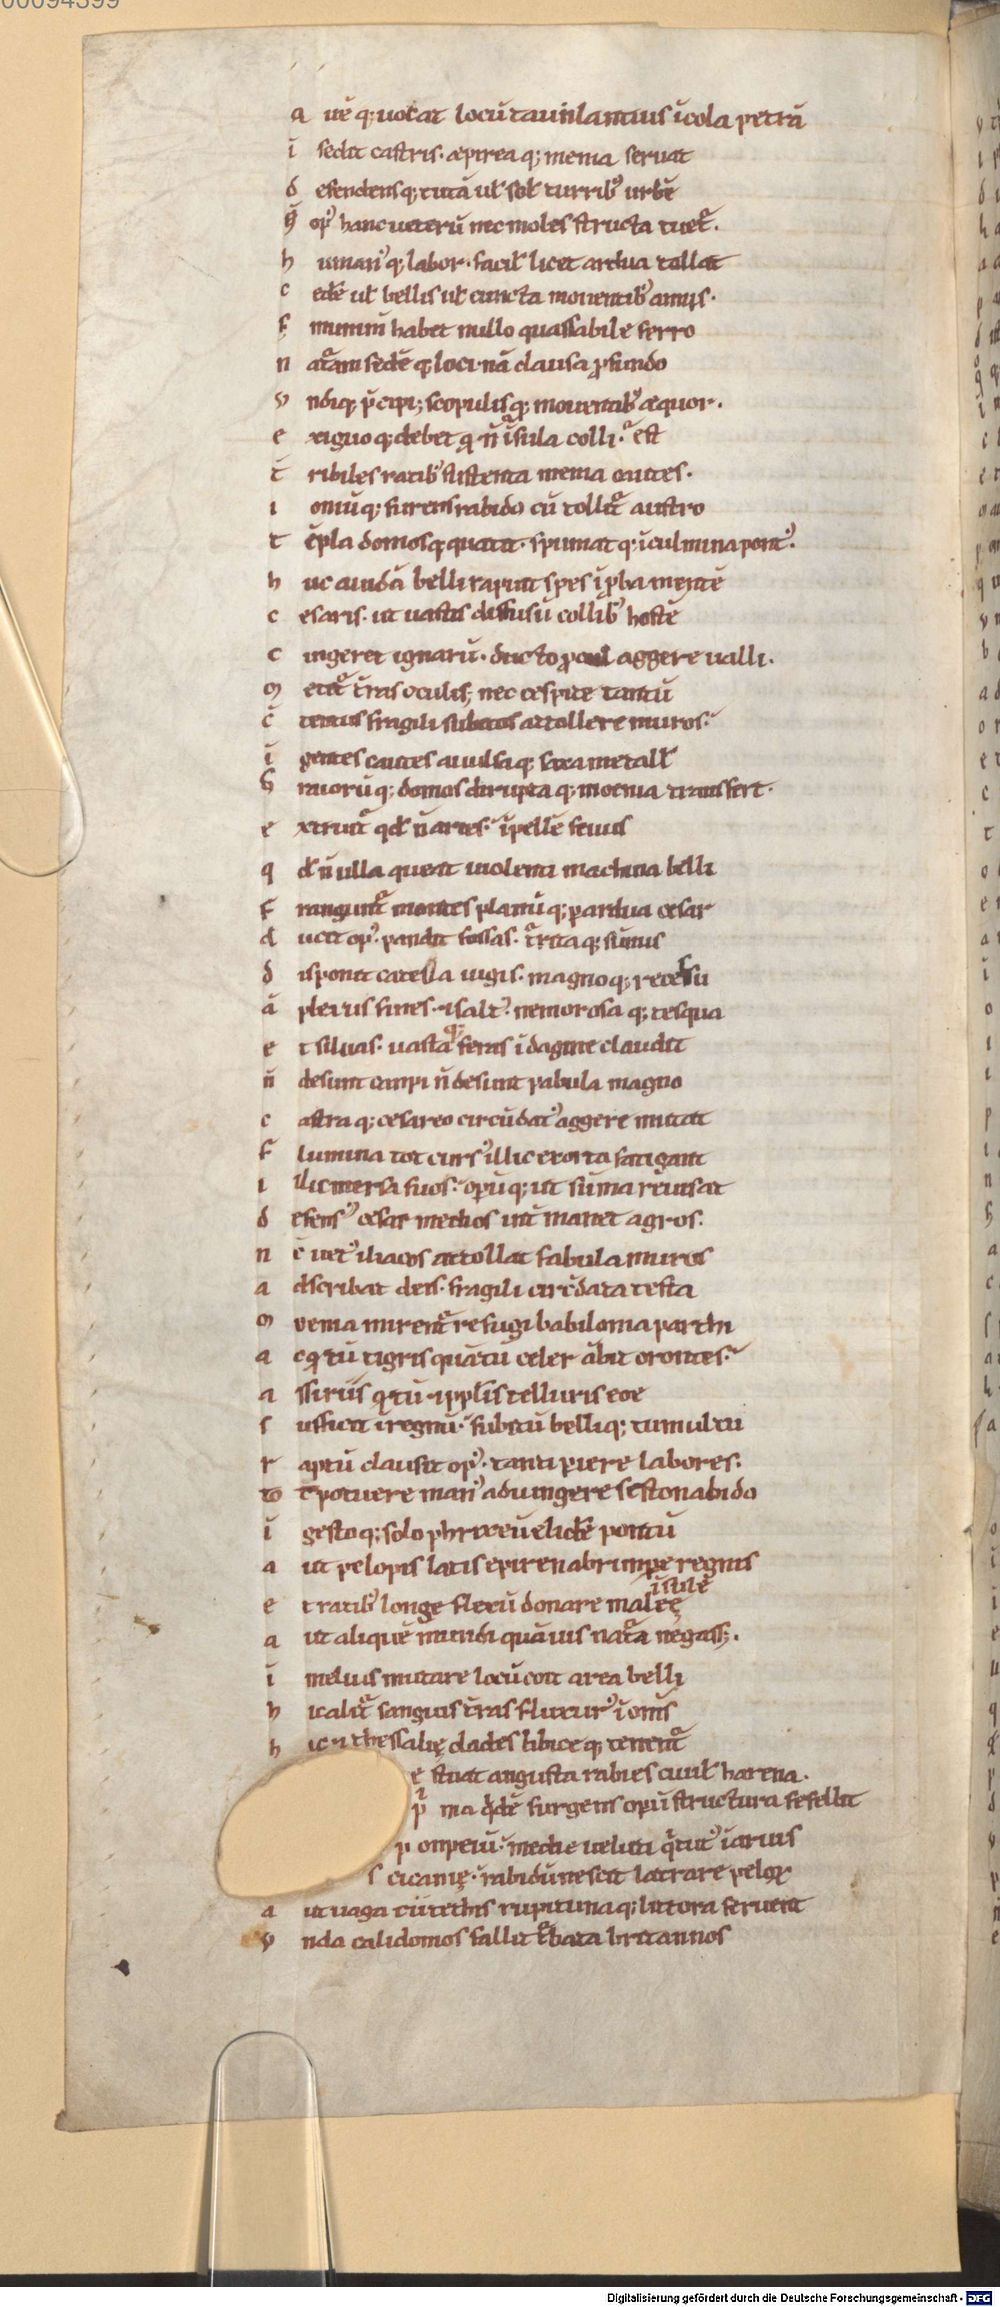 00094399
a uē q; uocat locū taulantius īcola petrā
ī sedit castris. epirea q; menia seruat
d efendens q; tutā ul sol turrib' urbē
h̄ op' hanc ueterū nec moles structa tuet᷑.
h uman' q; labor. facil' licet ardua tollat
c ed'e ul' bellis ul' cuncta mouentib' annis.
f munim̄ habet nullo quassabile ferro
n at᷑am sedē q; loci. nā clausa ꝓfundo
v ndiq; p̄cipi; scopulisq; mouentib' æquor.
e xiguo q; debet q n̄ īsula colli. ē est
t̄ ribiles ratib' sustenta menia cautes.
i oniū q; furens rabido cū tollit᷑ austro
t ēpla domosq; quatit. spumat q; ī culmina pont'.
h uc auidā belli rapiunt spes īꝓba mentē
c esaris. ut uastis diffusū collib' hostē
c ingeret ignarū. ducto ꝓcul aggere ualli.
m etit᷑ t̄ras oculis; nec cespite tantū
c̄ tentus fragili subitos attollere muros.
ī gentes cautes auulsa q; saxa metall'
g raiorū q; domos dirupta q; moenia transfert.
e xtruit᷑ qd' n̄ aries. īpelle seuus
q d' n̄ ulla queat uiolenti machina belli
f rangunt᷑ montes planū q; ꝑ ardua cesar
d ucit op'. pandit fossas. t᷑rita q; sūmis
d isponit castella iugis. magno q; recessu
ā plexus fines. saltꝰ nemorosa q; tesqua
e t siluas. uasta q; feras īdagine claudit
n̄ desunt campi n̄ desunt pabula magno
c astra q; cesareo circūdat' aggere mutat
f lumina tot curs' illic exorta fatigant
i llic mersa suos. opū q; ut sūma reuisat
d efens' cesar mediis int' manet agris.
n ē uet' iliacos attollat fabula muros
a dscribat deis. fragili circūdata testa
m oenia mirent᷑ refugi babilonia parthi
a c q̄tū tigris quātū celer ābit orontes.
a ssiriis q̄tū ipplis telluris eoe
s ufficit ī regnū. subitū belliq; tumultu
r aptū clausit op'. tanti ꝑiere labores.
to t potuere man' aduingere seston abido
ī gestoq; solo phrixeū elid'e pontū
a ut pelopis latis epiren abrumpe regnis
īsulē
e t ratib' longe flexū donare malee
a ut aliquē mundi quāuis nat᷑a negass;.
ī melius mutare locū coit area belli
h ic alit᷑ sanguis t̄ras fluxur' ī om̄s
h ic thessalię clades libice q; tenent᷑
e stuat angusta rabies ciuil' harena.
p̄ ma q'dē surgens opū structura fefellit
p onpeiū. medie ueluti q̄ tut' ī aruis
s cicanię. rabidū nescit latrare pelorū
a ut uaga cū tethis rupituna q; littora feruent
v nda calidomos fallit t'bata britannos
Digitalisierung gefördert durch die Deutsche Forschungsgemeinschaft - DFG